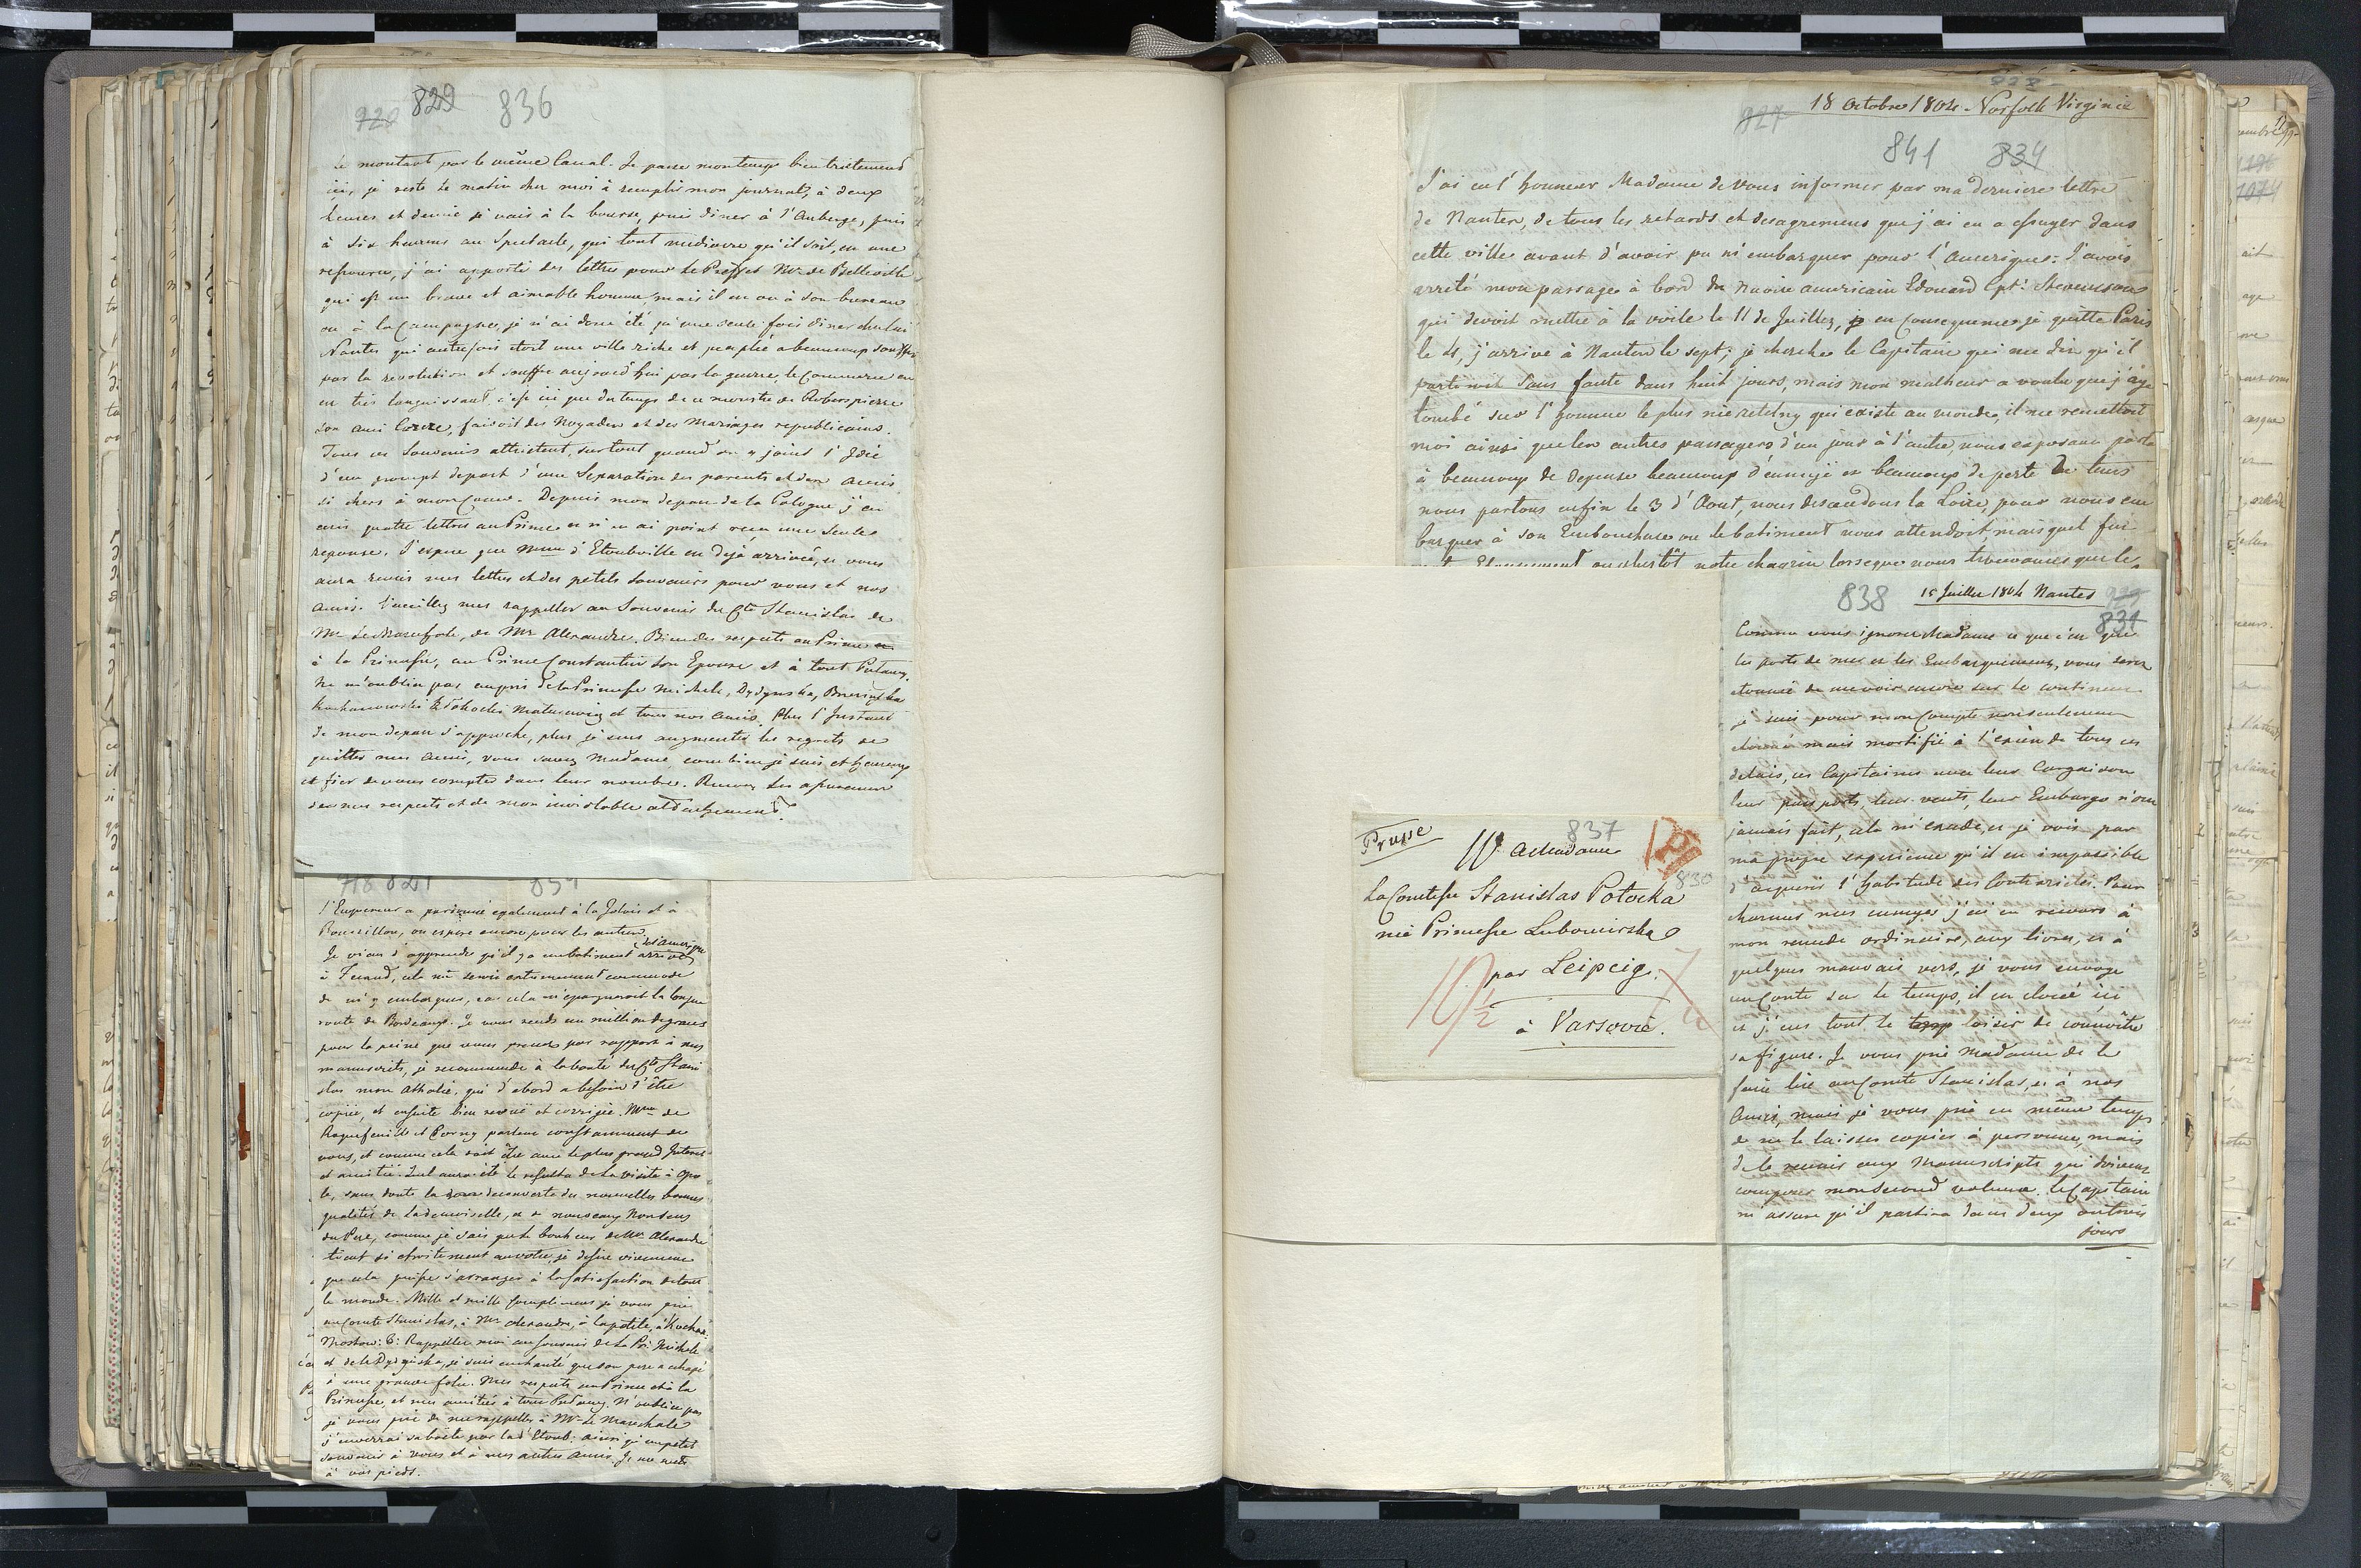 720 829 836
le montant par le même Canal. Je passe mon temps bien tristement
ici, je reste le matin chez moi à remplir mon journal, à deux
heures et demie je vais à la bourse, puis diner à l'Auberge, puis
à six heures au Spectacle, qui tout mediocre qu'il soit, est une
ressource, j'ai apporté des lettres pour le Prefet Mr. de Belleville
qui est un brave et aimable homme, mais il est ou à son bureau
ou à la Campagne, je n'ai donc été qu'une seule fois diner chez lui
Nantes qui autrefois etoit une ville riche et peuplée a beaucoup souffert
par la revolution et souffre aujourd'hui par la guerre, le Commerce en
est très languissant c'est ici que du temps de ce monstre de Roberspierre
son ami Carrier, faisoit des Noyades et des Mariages republicains.
Tous ces Souvenirs attristent, surtout quand on y joint l'Idée
d'un prompt depart d'une Separation des parents et des amis
si chers à mon Coeur. Depuis mon depart de la Pologne j'ai
ecris quatre lettres au Prince et n'en ai point reçu une Seule
reponse. J'espere que Mme d'Etoubville est dejà arrivée, et vous
aura remis mes lettres et des petits Souvenirs pour vous et nos
amis. Veuillez mes rappeller au Souvenir du Cte Stanislas de
Mr le Marechale, de Mr Alexandre. Bien des respects au Prince et
à la Princesse, au Prince Constantin son Epouse et à tout Pulawy.
Ne m'oubliez pas aupres de la Princesse Michele, Dydynska,
Kochanowski Matusewicz et tous nos amis. Plus l'Instant
de mon depart s'approche, plus je sens augmenter les regrets de
quitter mes amis, vous savez Madame combien je suis et heureux
et fier de vous compter dans leur nombre. Recevez les assurances
de mes respects et de mon inviolable attachement.
718 821 834
l'Empereur a pardonné egalement à la Jolais et à
Bouvillon, on espere encore pour les autres.
Je viens d'apprendre qu'il y a un batiment des amerique arrivé
à Fecand, cela me seroit extremement commode
de m'y embarquer, car cela m'epargneroit la longue
route de Bordeaux. Je vous rends un million de graces
pour la peine que vous prenez par rapport à mes
manuscrits, je recommande à la bonté du Cte Stani
slas mon Athalie, qui d'abord a besoin d'être
copiée, et ensuite bien revuë et corrigée. Mme de
Roquefeuille et Corny parlent constamment de
vous, et comme cela doit être avec le plus grand Interet
et amitié. Quel aura été le resultat de la visite à Opo
le, sans doute la decouverte des nouvelles bonnes
qualités de la demoiselle, et de nouveaux Nonsens
du Pere, comme je sais que le bonheur de Mr Alexandre
tient si etroitement au votre, je desire vivement
que cela puisse s'arranger à la satisfaction de tout
le monde. Mille et mille Complimens je vous prie
au Comte Stanislas, à Mr Alexandre, à la petite, à Kochan:
Mostow: &: Rappellez moi au Souvenir de la Pr: Michele
et de la Dydynska, je suis enchanté que son pere a echapé
à une grande folie. Mes respects au Prince et à la
Princesse, et mes amitiés à tout Pulawy. N'oubliez pas
je vous prie de me rappeller à Mr le Marechale
j'enverrai sa boete par la d'Etoub: ainsi qu'un petit
souvenir à vous et à mes autres amis. Je me mets
à vos pieds.
828
727 18 Octobre 1804 Norfolk Virginie
841 834
J'ai eu l'honneur Madame de vous informer par ma derniere lettre
de Nantes, de tous les retards et desagremens que j'ai eu a essuyer dans
cette ville avant d'avoir pu m'embarquer pour l'Amerique: J'avois
arrêté mon passage à bord du navire americain Edouard Cpt: Stevenson
qui devoit mettre à la voile le 11 de Juillet, en Consequence je quitte Paris
le 4, j'arrive à Nantes le sept; je cherche le Capitaine qui me dit qu'il
partiroit sans faute dans huit jours, mais mon malheur a voulu que j'aye
tombé sur l'homme le plus qui existe au monde, il me remettoit
moi ainsi que les autres passagers d'un jour à l'autre, nous exposant par là
à beaucoup de depense beaucoup d'ennui et beaucoup de perte de tems
nous partons enfin le 3 d'Aout, nous descendons la Loire, pour nous em
barquer à son Embouchure ou le batiment nous attendoit, mais quel fut
notre Etonnement ou plustôt notre chagrin lorsque nous trouvames que le
838 15 Juillet 1804 Nantes 729
831
Comme vous ignorez Madame ce que c'est que
les ports de mer et les Embarquemens, vous serez
etonnée de me voir encore sur le continent
je suis pour mon Compte non seulement
etonné mais mortifié à l'excès de tous ces
delais, ces Capitaines avec leur Cargaison
leur passports, leur vents, leur Embargo n'ont
jamais fait, cela m'excede, et je vois par
ma propre experience qu'il est impossible
d'acquerir l'habitude des Contrarietés. Pour
charmer mes ennuyes j'ai eu recours à
mon remede ordinaire, aux livres, et à
quelques mauvais vers, je vous envoye
un Conte sur le temps, il est clouée ici
et j'eus tout le loisir de connoitre
sa figure. Je vous prie Madame de le
faire lire au Comte Stanislas, et à nos
Amis, mais je vous prie en même temps
de ne le laisser copier à personne, mais
de le reunir aux Manuscripts qui doivent
composer mon Second volume. le Capitaine
m'assure qu'il partira dans deux ou trois
jours
837
Prusse
A Madame
830
La Comtesse Stanislas Potocka
née Princesse Lubomirska
par Leipcig.
à Varsovie.